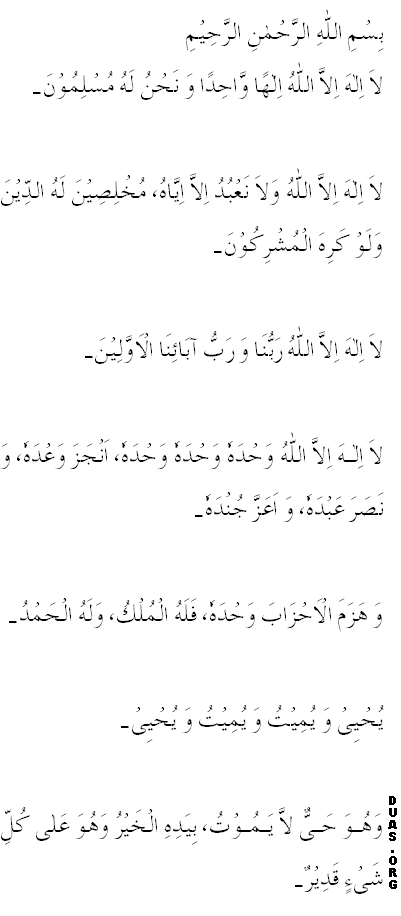 بِسْمِ اللّٰهِ الرَّحْمٰنِ الرَّحِيْمِ
لاَ اِلٰهَ اِلاَّ اللّٰهُ اِلٰهًا وَّاحِدًا وَ نَحْنُ لَهُ مُسْلِمُوْنَ۔
لاَ اِلٰهَ اِلاَّ اللّٰهُ وَلاَ نَعْبُدُ اِلاَّ اِيَّاهُ، مُخْلِصِيْنَ لَهُ الدِّيْنَ
وَلَوْ كَرِهَ الْمُشْرِكُوْنَ۔
لاَ اِلٰهَ اِلاَّ اللّٰهُ رَبُّنَا وَ رَبُّ آبَائِنَا الْاَوَّلِيْنَ۔
لاَ اِلٰـهَ اِلاَّ اللّٰهُ وَحْدَهٗ وَحْدَهٗ وَحْدَهٗ، اَنْجَزَ وَعْدَهٗ، وَ
نَصَرَ عَبْدَهٗ، وَ اَعَزَّ جُنْدَهٗ۔
وَ هَزَمَ الْاَحْزَابَ وَحْدَهٗ، فَلَهُ الْمُلْكُ، وَلَهُ الْحَمْدُ۔
يُحْيِيْ وَ يُمِيْتُ وَ يُمِيْتُ وَ يُحْيِيْ۔
وَهُـوَ حَـيٌّ لاَّ يَـمُـوْتُ، بِيَدِهِ الْخَيْرُ وَهُوَ عَلى كُلِّ
شَيْءٍ قَدِيْرٌ۔
DUAS.ORG